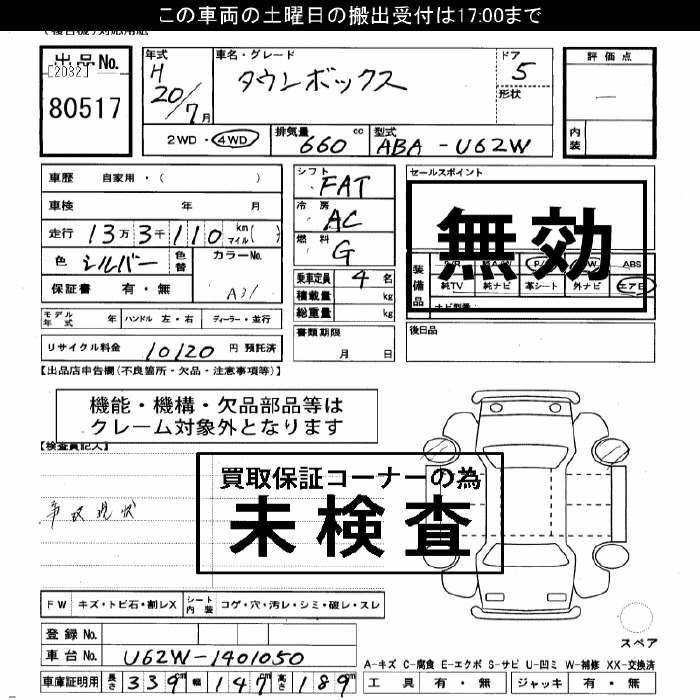 この車両の土曜日の搬出受付は17:00まで
出品No.
[2032]
80517
年式 車名・グレード ドア 評価点
H
20/7月
タウンボックス
5
形状
内装
2WD・4WD
排気量 660 cc
型式 ABA-U62W
車歴 自家用・( )
車検 年 月
走行 13万3千110 km マイル( )
色 シルバー 色替 カラーNo. A31
保証書 有・無
シフト FAT
冷房 AC
燃料 G
乗車定員 4名
積載量 kg
総重量 kg
セールスポイント
無効
装備品
ABS
純TV 純ナビ 革シート 外ナビ エアB
ナビ型番:
後日品
モデル年式 年 ハンドル 左・右 ディーラー・並行
リサイクル料金 10120 円 預託済
書類期限
月 日
【出品店申告欄(不良箇所・欠品・注意事項等)】
機能・機構・欠品部品等は
クレーム対象外となります
【検査員記入】
買取保証コーナーの為
未検査
現状
FW キズ・トビ石・割レX シート内装 コゲ・穴・汚レ・シミ・破レ・スレ
スペア
登録No.
車台No. U62W-1401050
A-キズ C-腐食 E-エクボ S-サビ U-凹ミ W-補修 XX-交換済
車庫証明用 長さ 339cm 幅 147cm 高さ 189cm
工具 有・無 ジャッキ 有・無